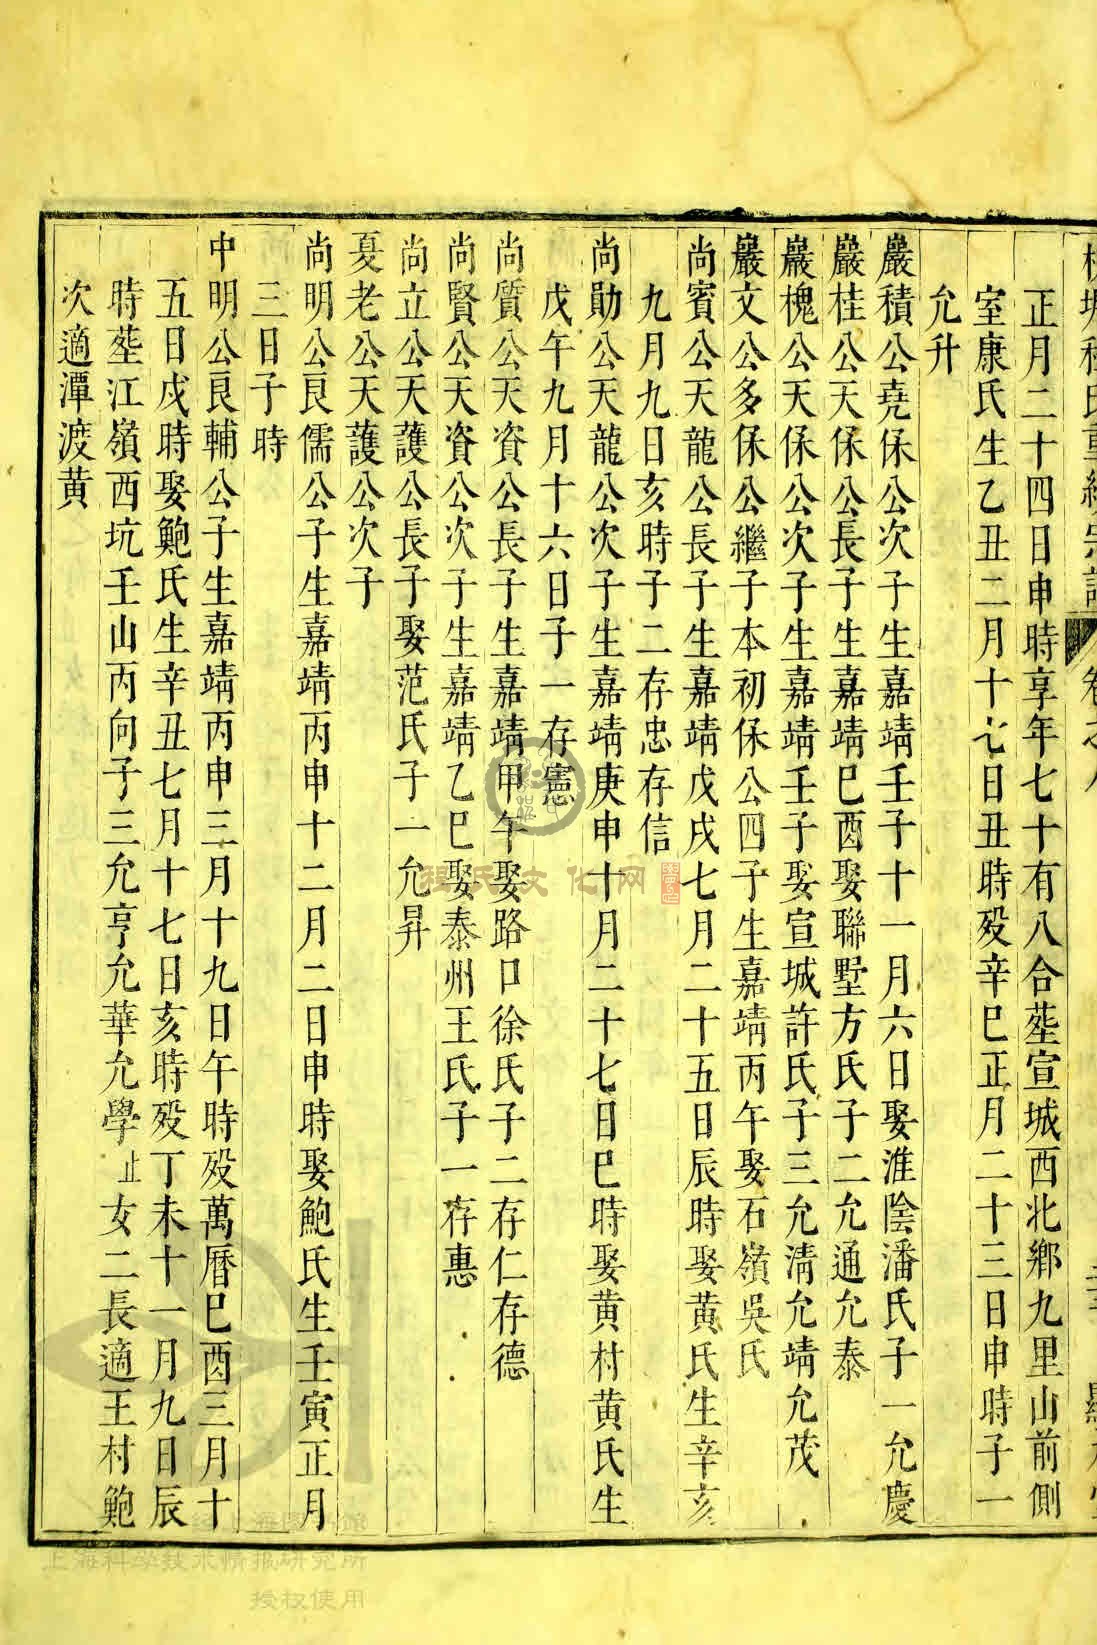 正月二十四日申時享年七十有八合塟宣城西北鄉九里山前側
室康氏生乙丑二月十七日丑時殁辛巳正月二十三日申時子一
允升
巖積公堯保公次子生嘉靖壬子十一月六日娶淮陰潘氏子一允慶
巖桂公天保公長子生嘉靖己酉娶聯墅方氏子二允通允泰
巖槐公天保公次子生嘉靖壬子娶宣城許氏子三允淸允靖允茂
巖文公多保公繼子本初保公四子生嘉靖丙午娶石嶺吳氏
尚賓公天龍公長子生嘉靖戊戌七月二十五日辰時娶黄氏生辛亥
九月九日亥時子二存忠存信
尚勛公天龍公次子生嘉靖庚申十月二十七日巳時娶黄村黄氏生
戊午九月十六日子一存憲
尚質公天資公長子生嘉靖甲午娶路口徐氏子二存仁存德
尚賢公天資公次子生嘉靖乙巳娶泰州王氏子一存惠
尚立公天護公長子娶范氏子一允昇
夏老公天護公次子
尚明公良儒公子生嘉靖丙申十二月二日申時娶鮑氏生壬寅正月
三日子時
中明公良輔公子生嘉靖丙申三月十九日午時殁萬曆己酉三月十
五日戌時娶鮑氏生辛丑七月十七日亥時殁丁未十一月九日辰
時塟江嶺西坑壬山丙向子三允亨允華允學止女二長適王村鮑
次適潭渡黄
程氏文化网
上海科学技术情报研究所
授权使用